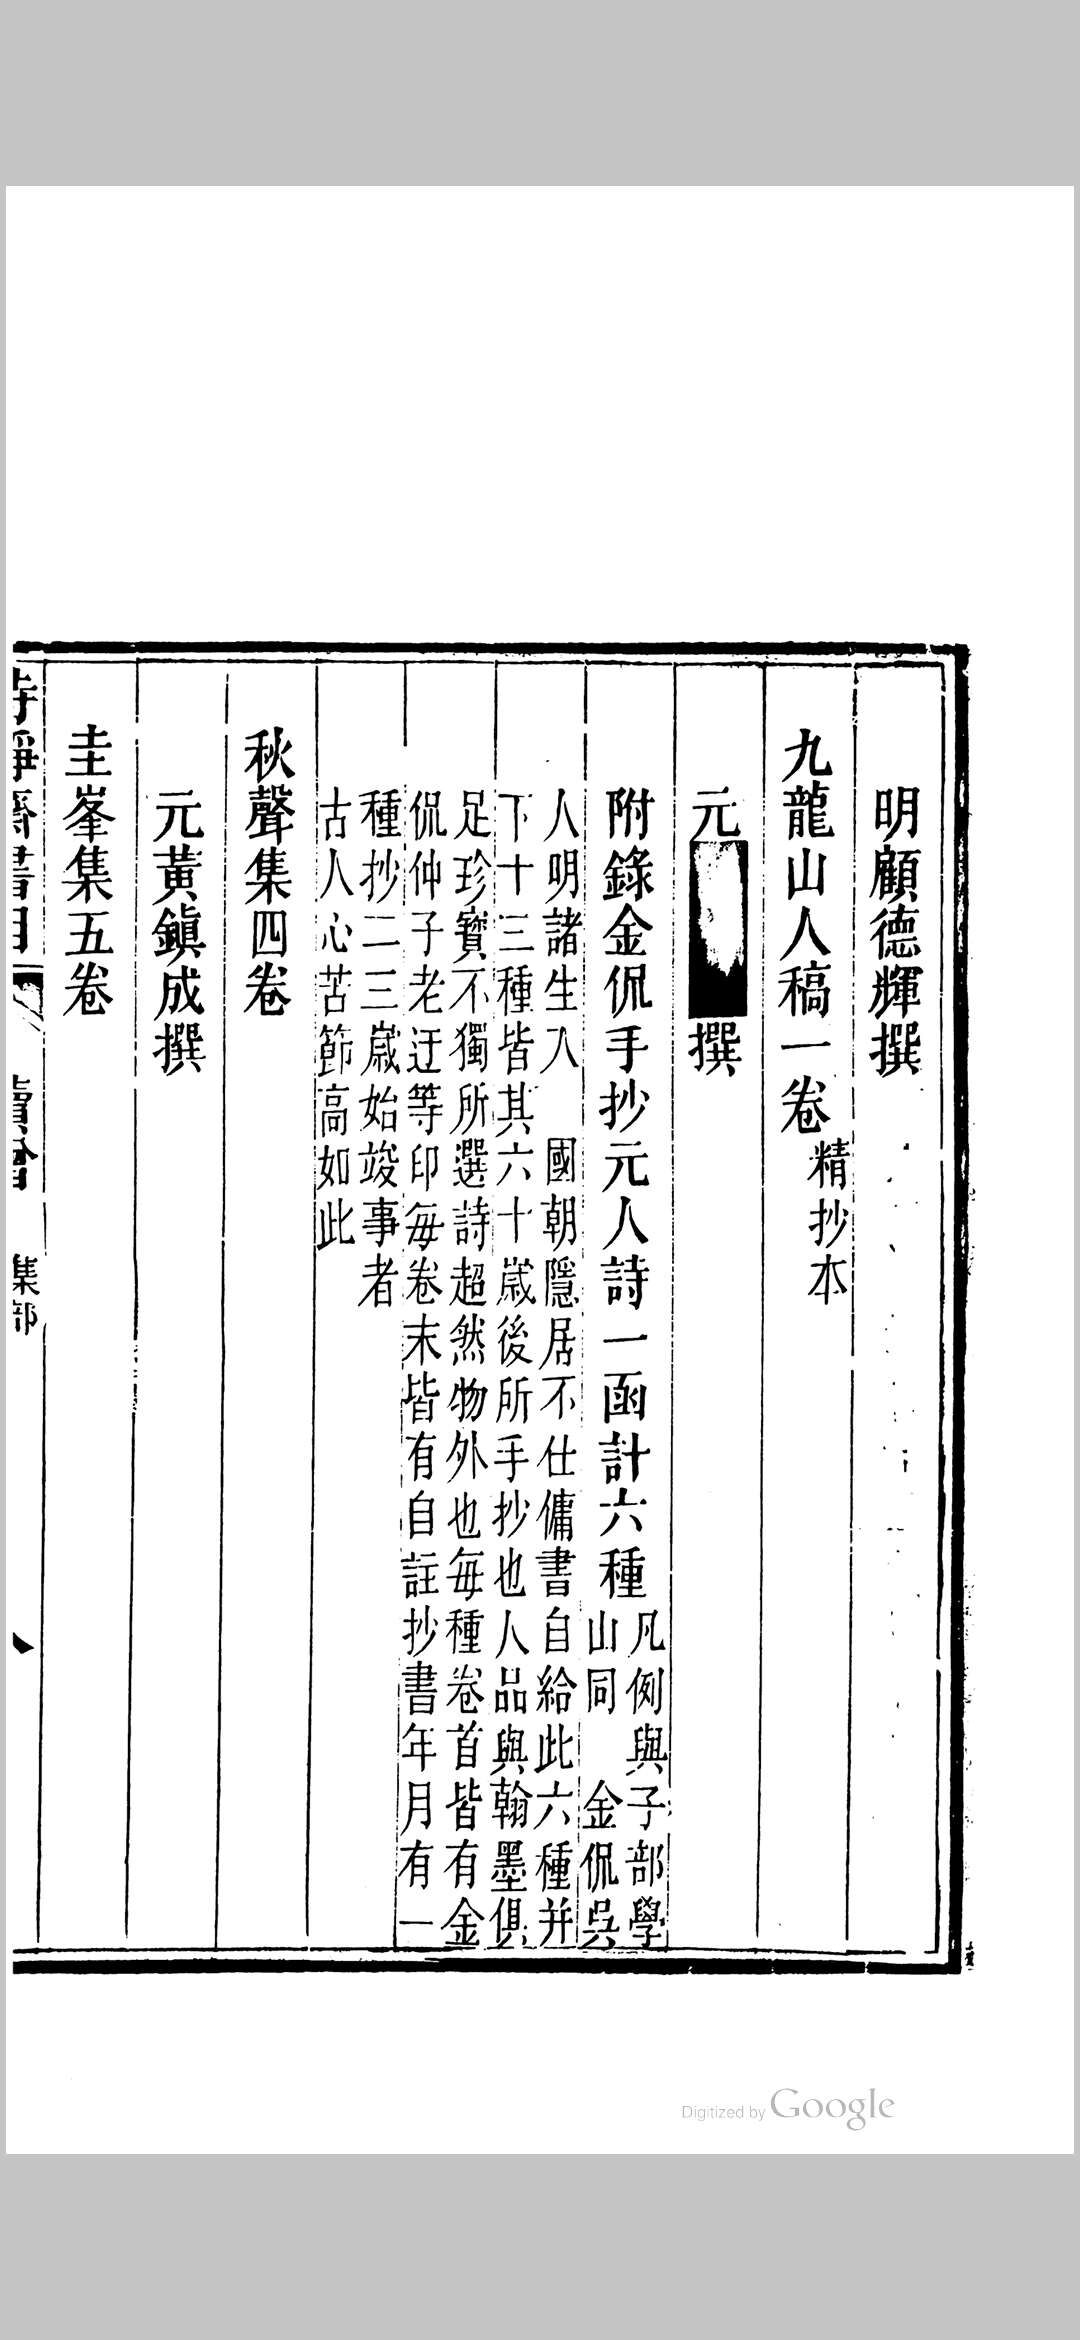 明顧德輝撰
九龍山人稿一卷精抄本
元
撰
附錄金侃手抄元人詩一函計六種
凡例與子部學
山同　金侃吳
人明諸生入　國朝隱居不仕傭書自給此六種并
下十三種皆其六十歲後所手抄也人品與翰墨俱
足珍寶不獨所選詩超然物外也每種卷首皆有金
侃仲子老迂等印每卷末皆有自註抄書年月有一
種抄二三歲始竣事者
古人心苦節高如此
秋聲集四卷
元黃鎮成撰
圭峯集五卷
集部
Digitized by Google